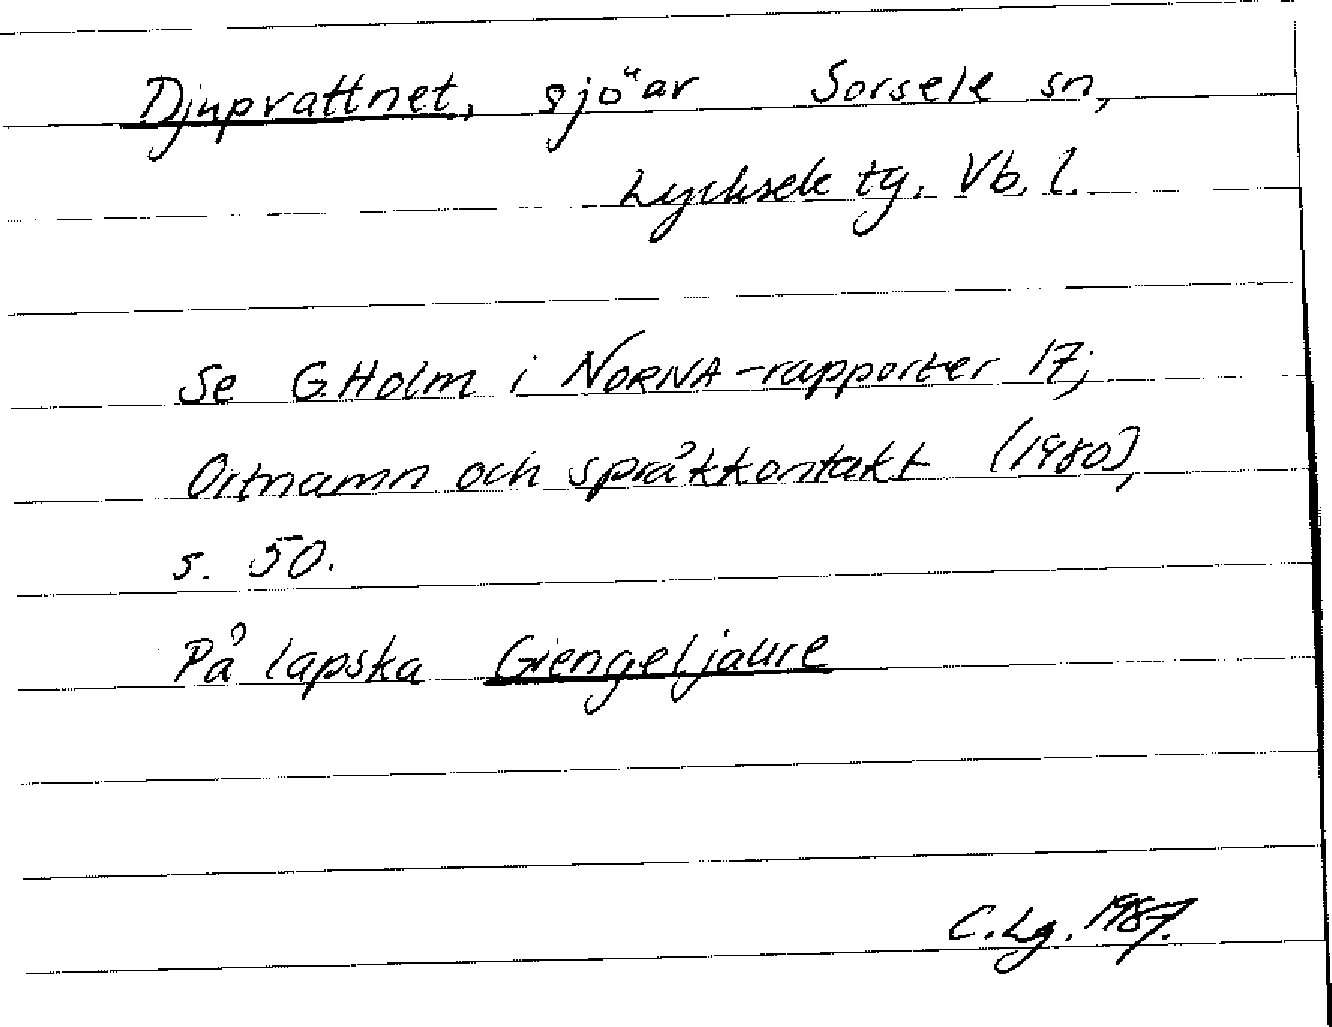 Djupvattnet, sjöar Sorsele sn,
Lycksele tg. Vb. l.
Se G. Holm i NORNA-rapporter 17;
Ortnamn och språkkontakt (1980),
s. 50.
På lapska Giengeljaure
C. Lg. 1987.